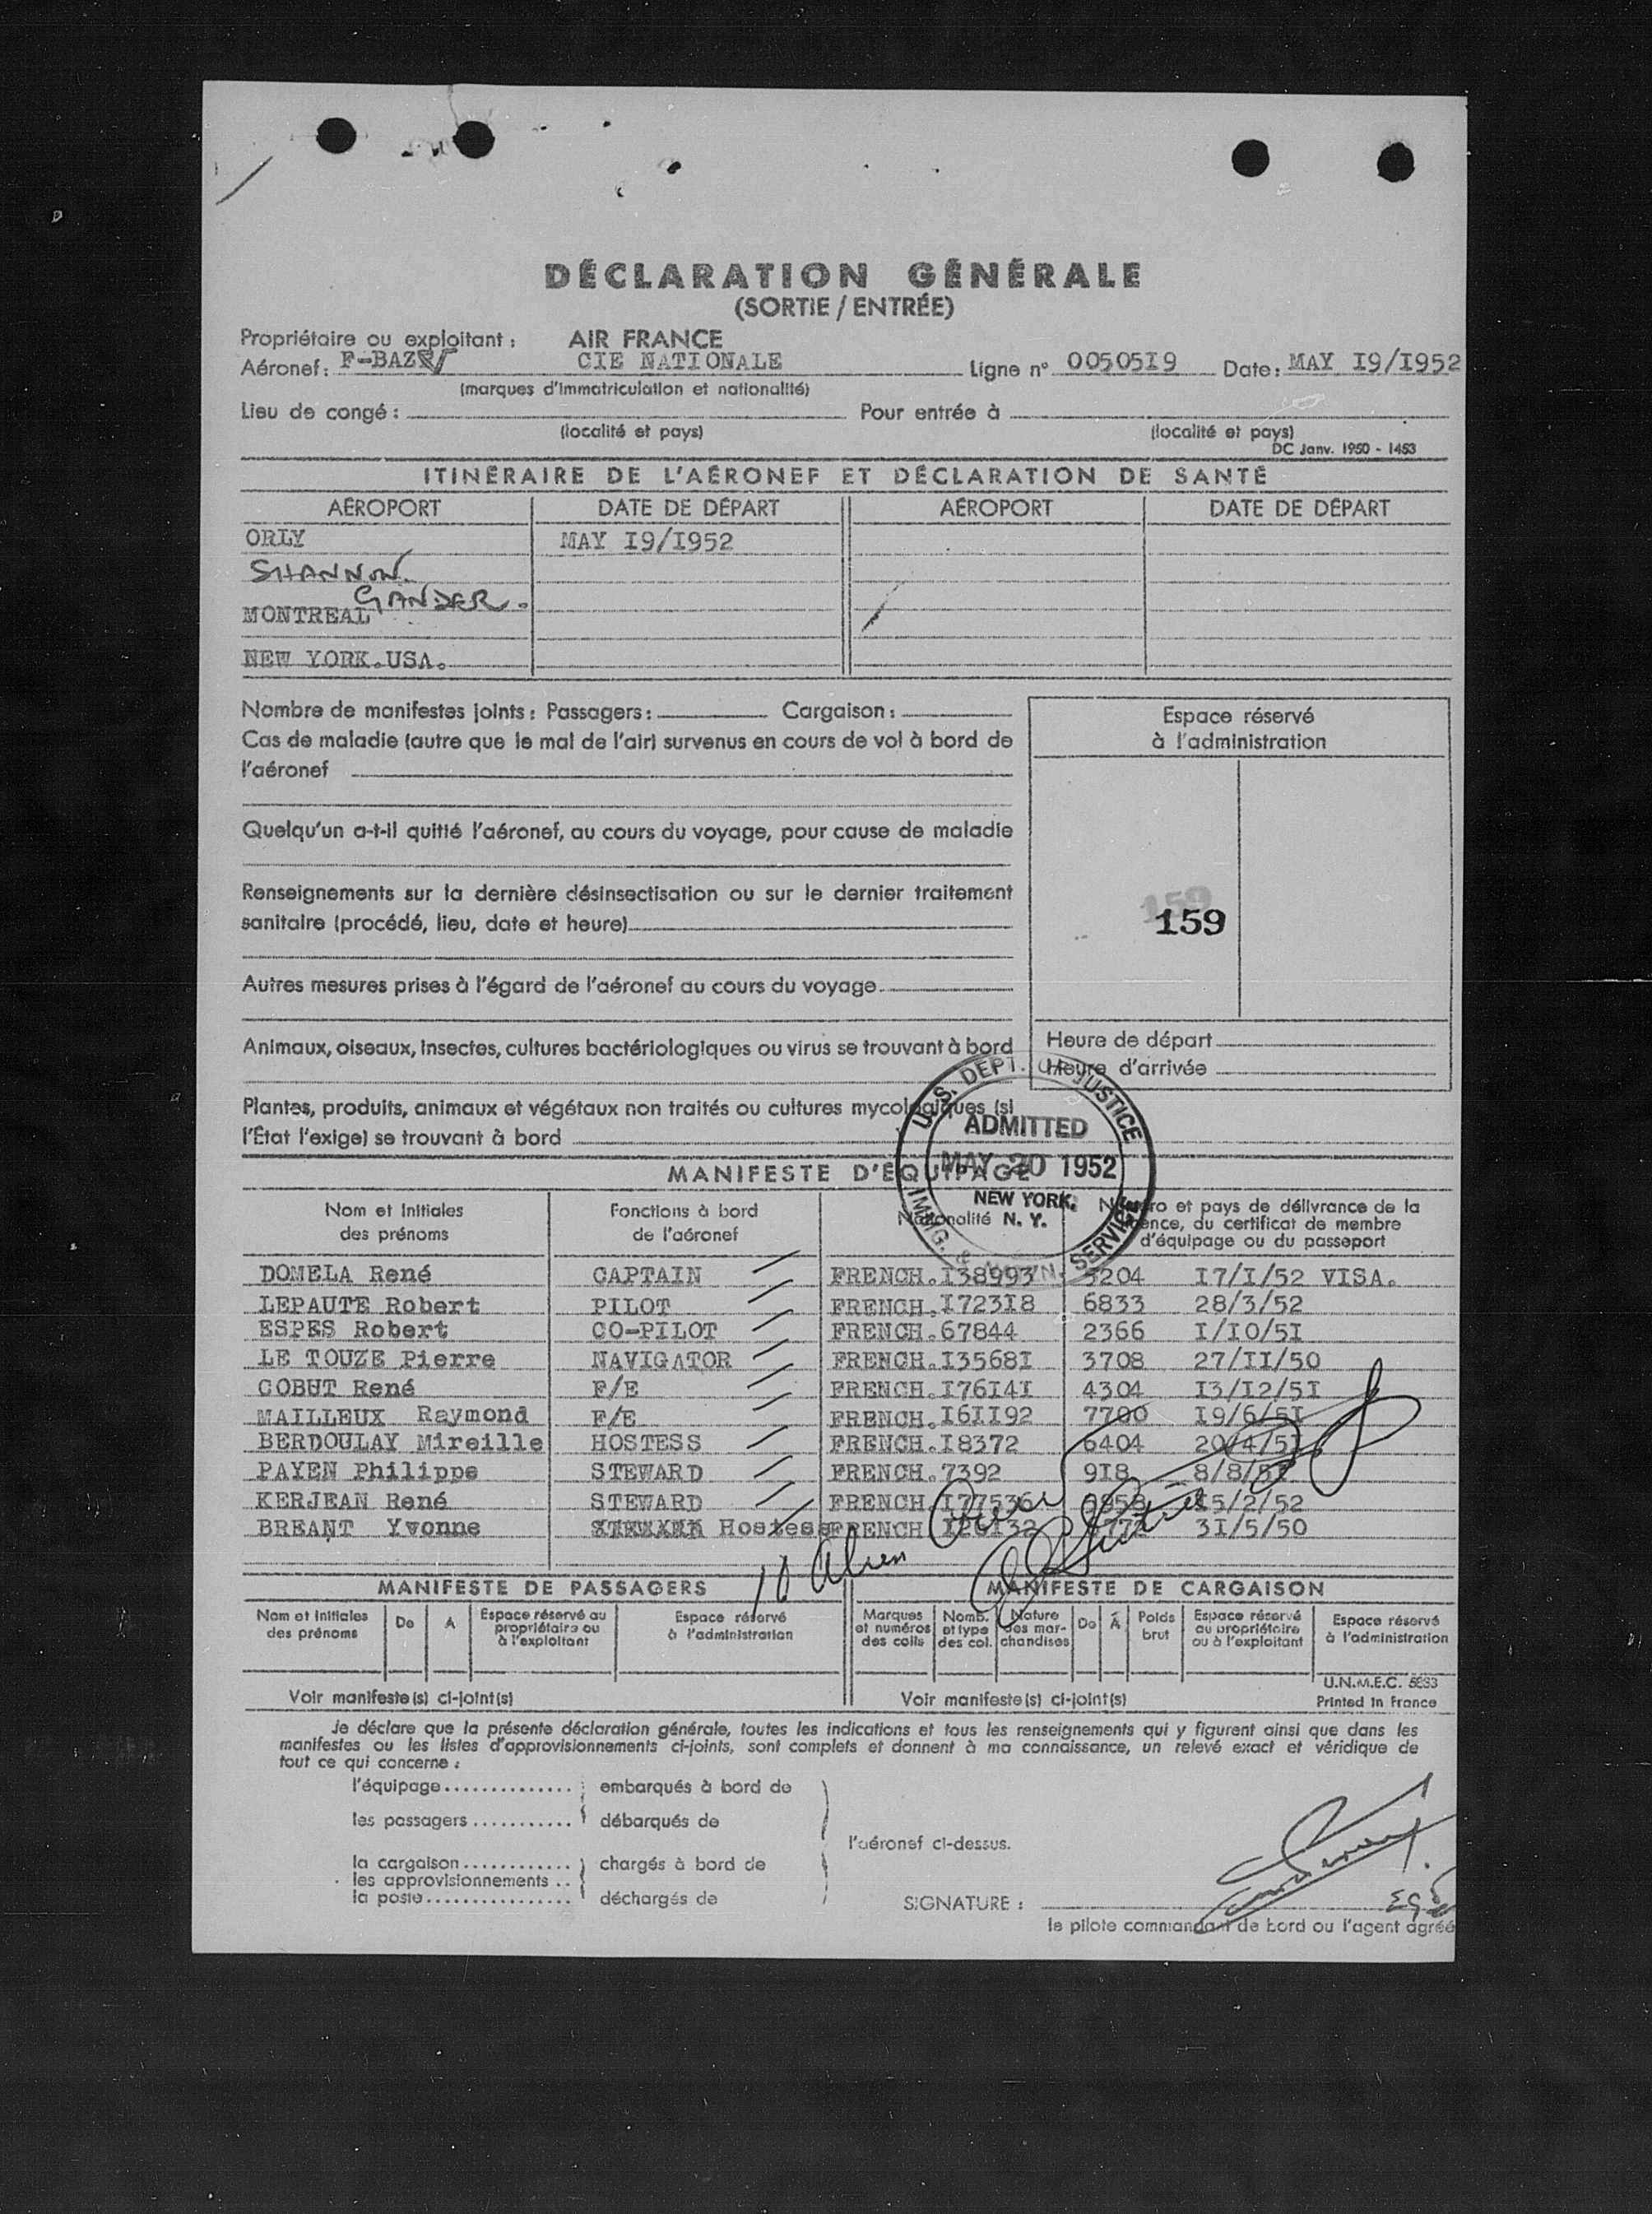 DÉCLARATION GÉNÉRALE
(SORTIE / ENTRÉE)
Propriétaire ou exploitant : AIR FRANCE
Aéronef : F-BAZ CIE NATIONALE Ligne n° 0050519 Date : MAY I9/I952
(marques d'immatriculation et nationalité)
Lieu de congé : Pour entrée à
(localité et pays) (localité et pays)
DC Janv. 1950 - 1453
ITINÉRAIRE DE L'AÉRONEF ET DÉCLARATION DE SANTÉ
AÉROPORT DATE DE DÉPART AÉROPORT DATE DE DÉPART
ORLY MAY I9/I952
SHANNON
GANDER.
MONTREAL
NEW YORK.USA.
Nombre de manifestes joints : Passagers : Cargaison :
Espace réservé
à l'administration
Cas de maladie (autre que le mal de l'air) survenus en cours de vol à bord de
l'aéronef
Quelqu'un a-t-il quitté l'aéronef, au cours du voyage, pour cause de maladie
Renseignements sur la dernière désinsectisation ou sur le dernier traitement
sanitaire (procédé, lieu, date et heure)
159
159
Autres mesures prises à l'égard de l'aéronef au cours du voyage
Animaux, oiseaux, insectes, cultures bactériologiques ou virus se trouvant à bord
Heure de départ
Heure d'arrivée
Plantes, produits, animaux et végétaux non traités ou cultures mycologiques (si
l'État l'exige) se trouvant à bord
U. S. DEPT. OF JUSTICE
ADMITTED
MAY 20 1952
NEW YORK,
N. Y.
IMMIG. & NATZN. SERVICE
MANIFESTE D'ÉQUIPAGE
Nom et Initiales des prénoms
Fonctions à bord de l'aéronef
Nationalité
Numéro et pays de délivrance de la licence, du certificat de membre d'équipage ou du passeport
DOMELA René CAPTAIN FRENCH.I38993 5204 I7/I/52 VISA.
LEPAUTE Robert PILOT FRENCH.I72318 6833 28/3/52
ESPES Robert CO-PILOT FRENCH.67844 2366 I/IO/5I
LE TOUZE Pierre NAVIGATOR FRENCH.I3568I 3708 27/II/50
COBUT René F/E FRENCH.I76I4I 4304 I3/I2/5I
MAILLEUX Raymond F/E FRENCH.I6II92 7700 I9/6/5I
BERDOULAY Mireille HOSTESS FRENCH.I8372 6404 20/4/5I
PAYEN Philippe STEWARD FRENCH.7392 9I8 8/8/5I
KERJEAN René STEWARD FRENCH.I77536 I5/2/52
BREANT Yvonne Hostess FRENCH I26I32 3I/5/50
10 Alien Crew
MANIFESTE DE PASSAGERS MANIFESTE DE CARGAISON
Nom et Initiales des prénoms
De
A
Espace réservé au propriétaire ou à l'exploitant
Espace réservé à l'administration
Marques et numéros des colis
Nomb. et type des col.
Nature des marchandises
De
À
Poids brut
Espace réservé au propriétaire ou à l'exploitant
Espace réservé à l'administration
Voir manifeste(s) ci-joint(s) Voir manifeste(s) ci-joint(s)
U.N.M.E.C. 5893
Printed in France
Je déclare que la présente déclaration générale, toutes les indications et tous les renseignements qui y figurent ainsi que dans les
manifestes ou les listes d'approvisionnements ci-joints, sont complets et donnent à ma connaissance, un relevé exact et véridique de
tout ce qui concerne :
l'équipage............... embarqués à bord de
les passagers ........... débarqués de
l'aéronef ci-dessus.
la cargaison............ chargés à bord de
les approvisionnements ..
la poste................. déchargés de
SIGNATURE :
le pilote commandant de bord ou l'agent agréé